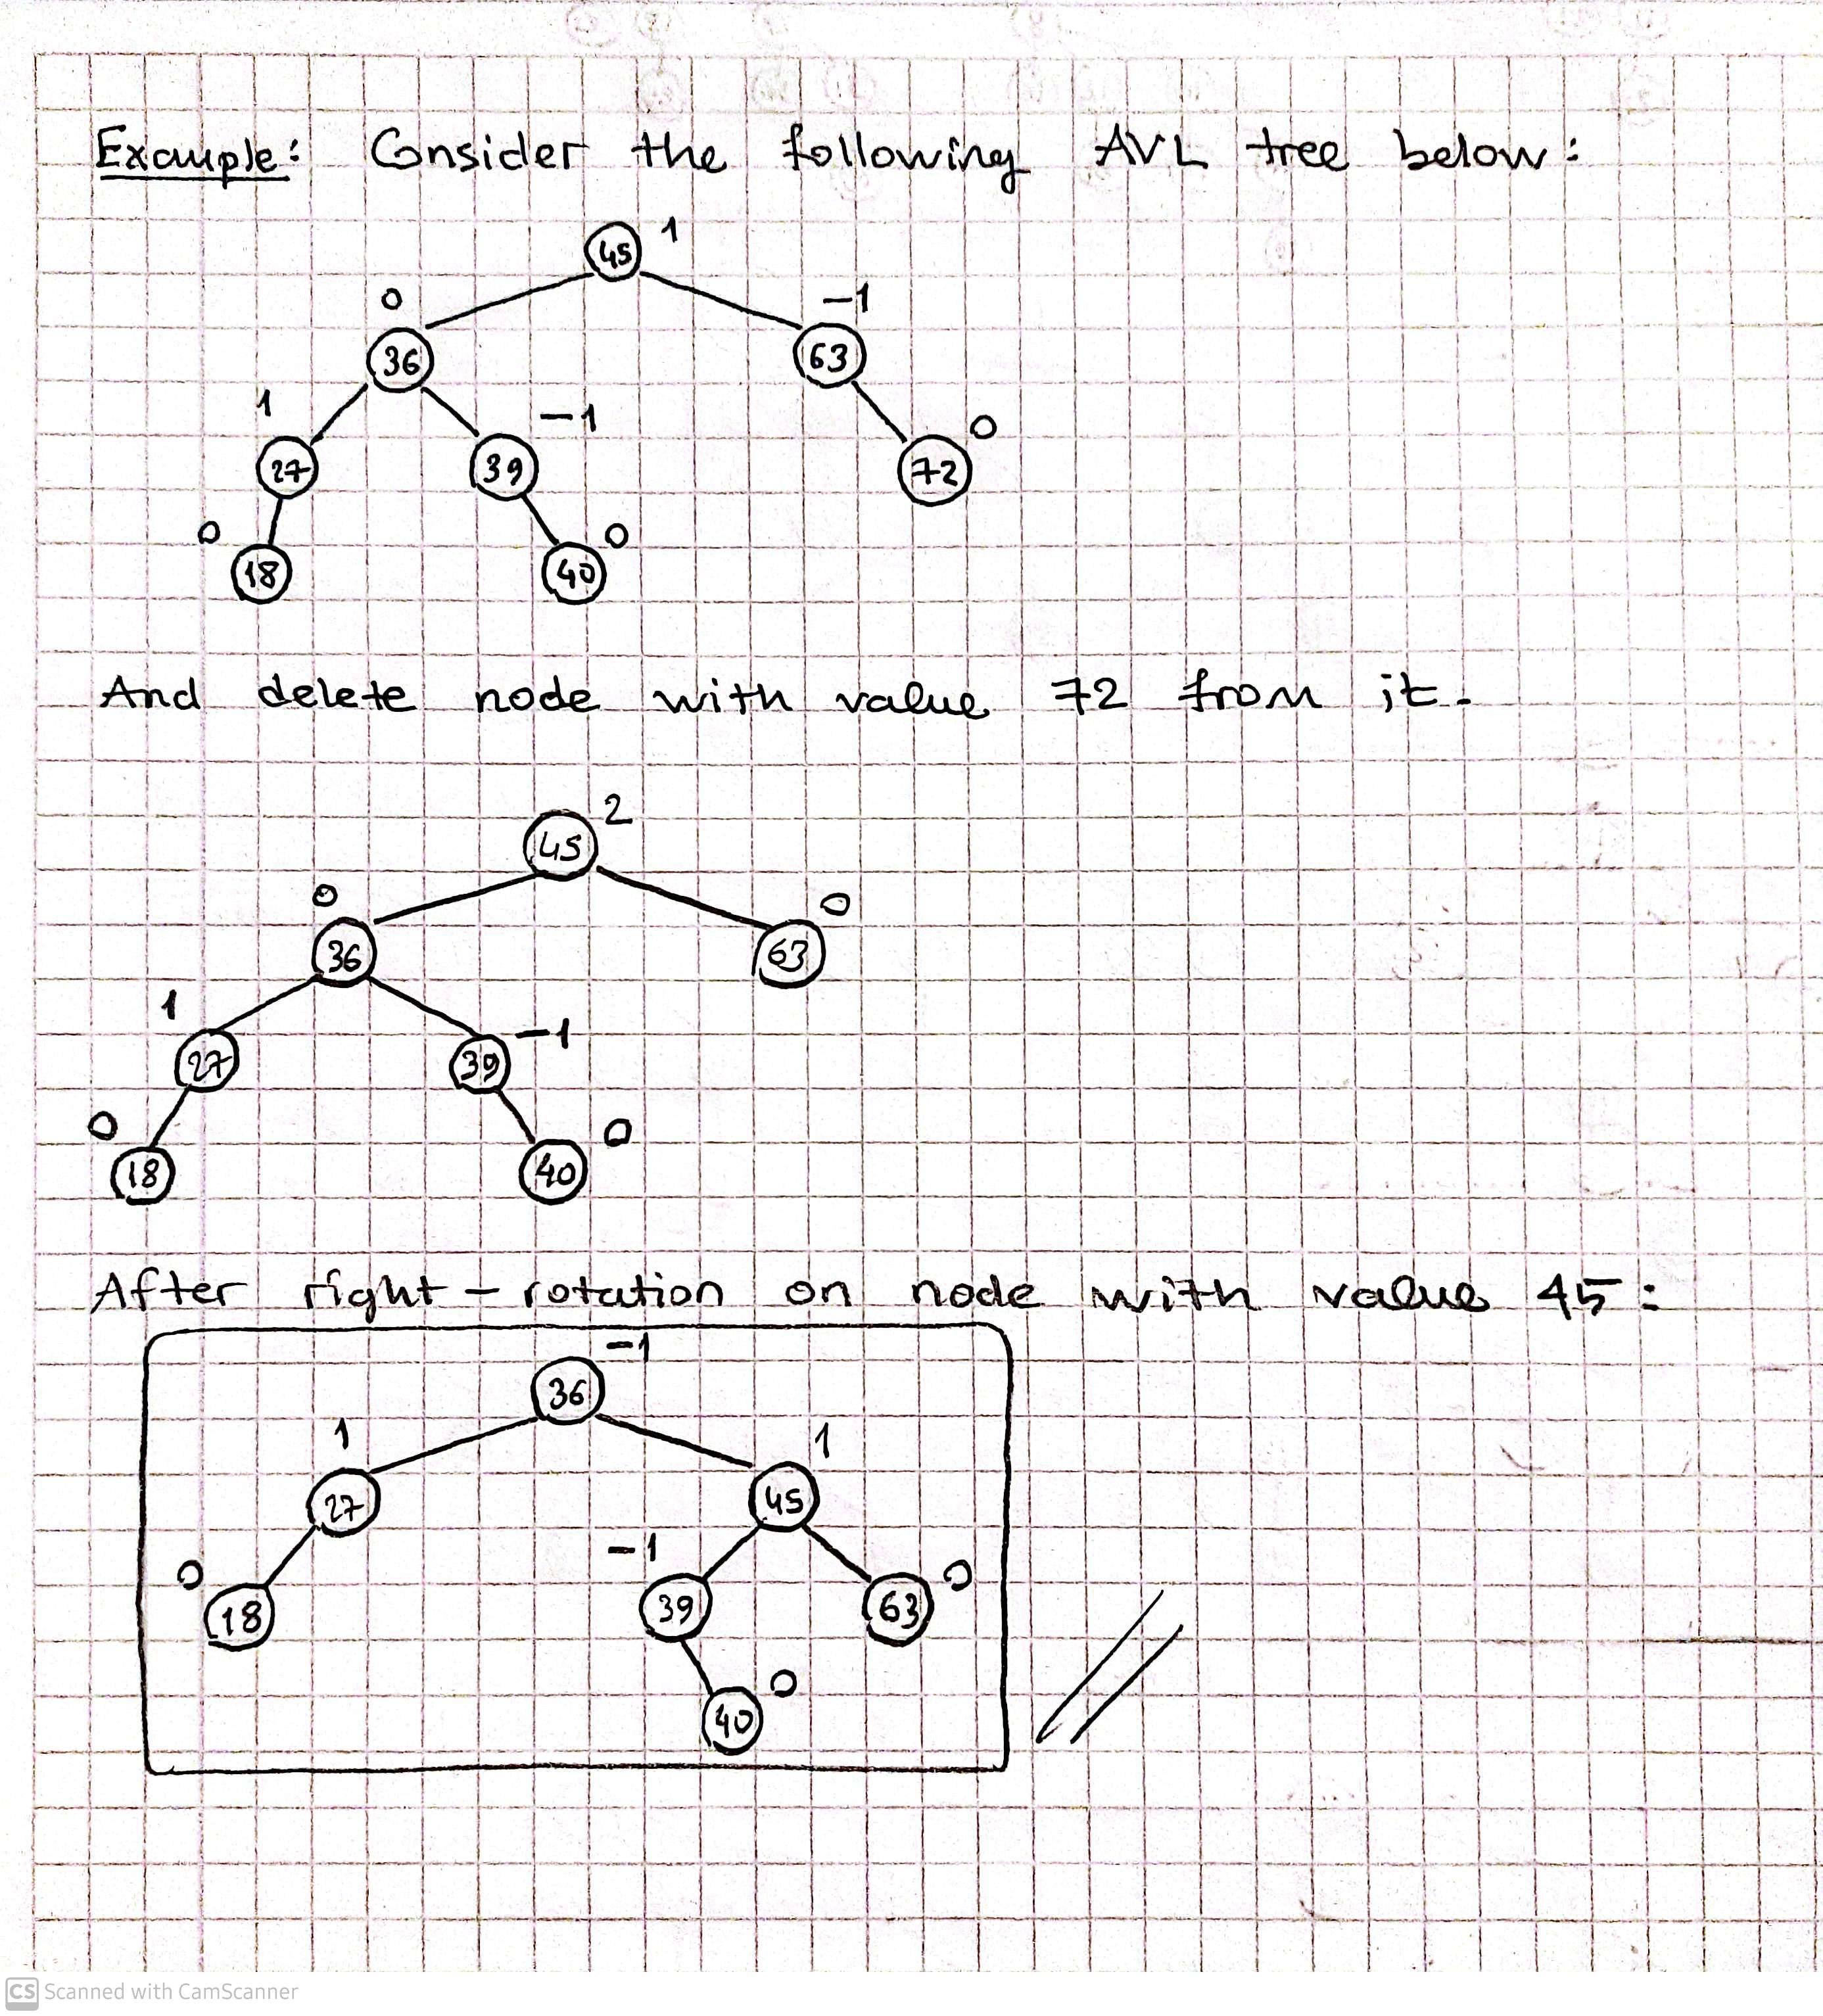 Example: Consider the following AVL tree below:
45 1
0 -1
36 63
1 -1 0
27 39 72
0 0
18 40
And delete node with value 72 from it.
45 2
0 0
36 63
1 -1
27 39
0 0
18 40
After right-rotation on node with value 45:
-1
36
1 1
27 45
0 -1 0
18 39 63
0
40
CS Scanned with CamScanner